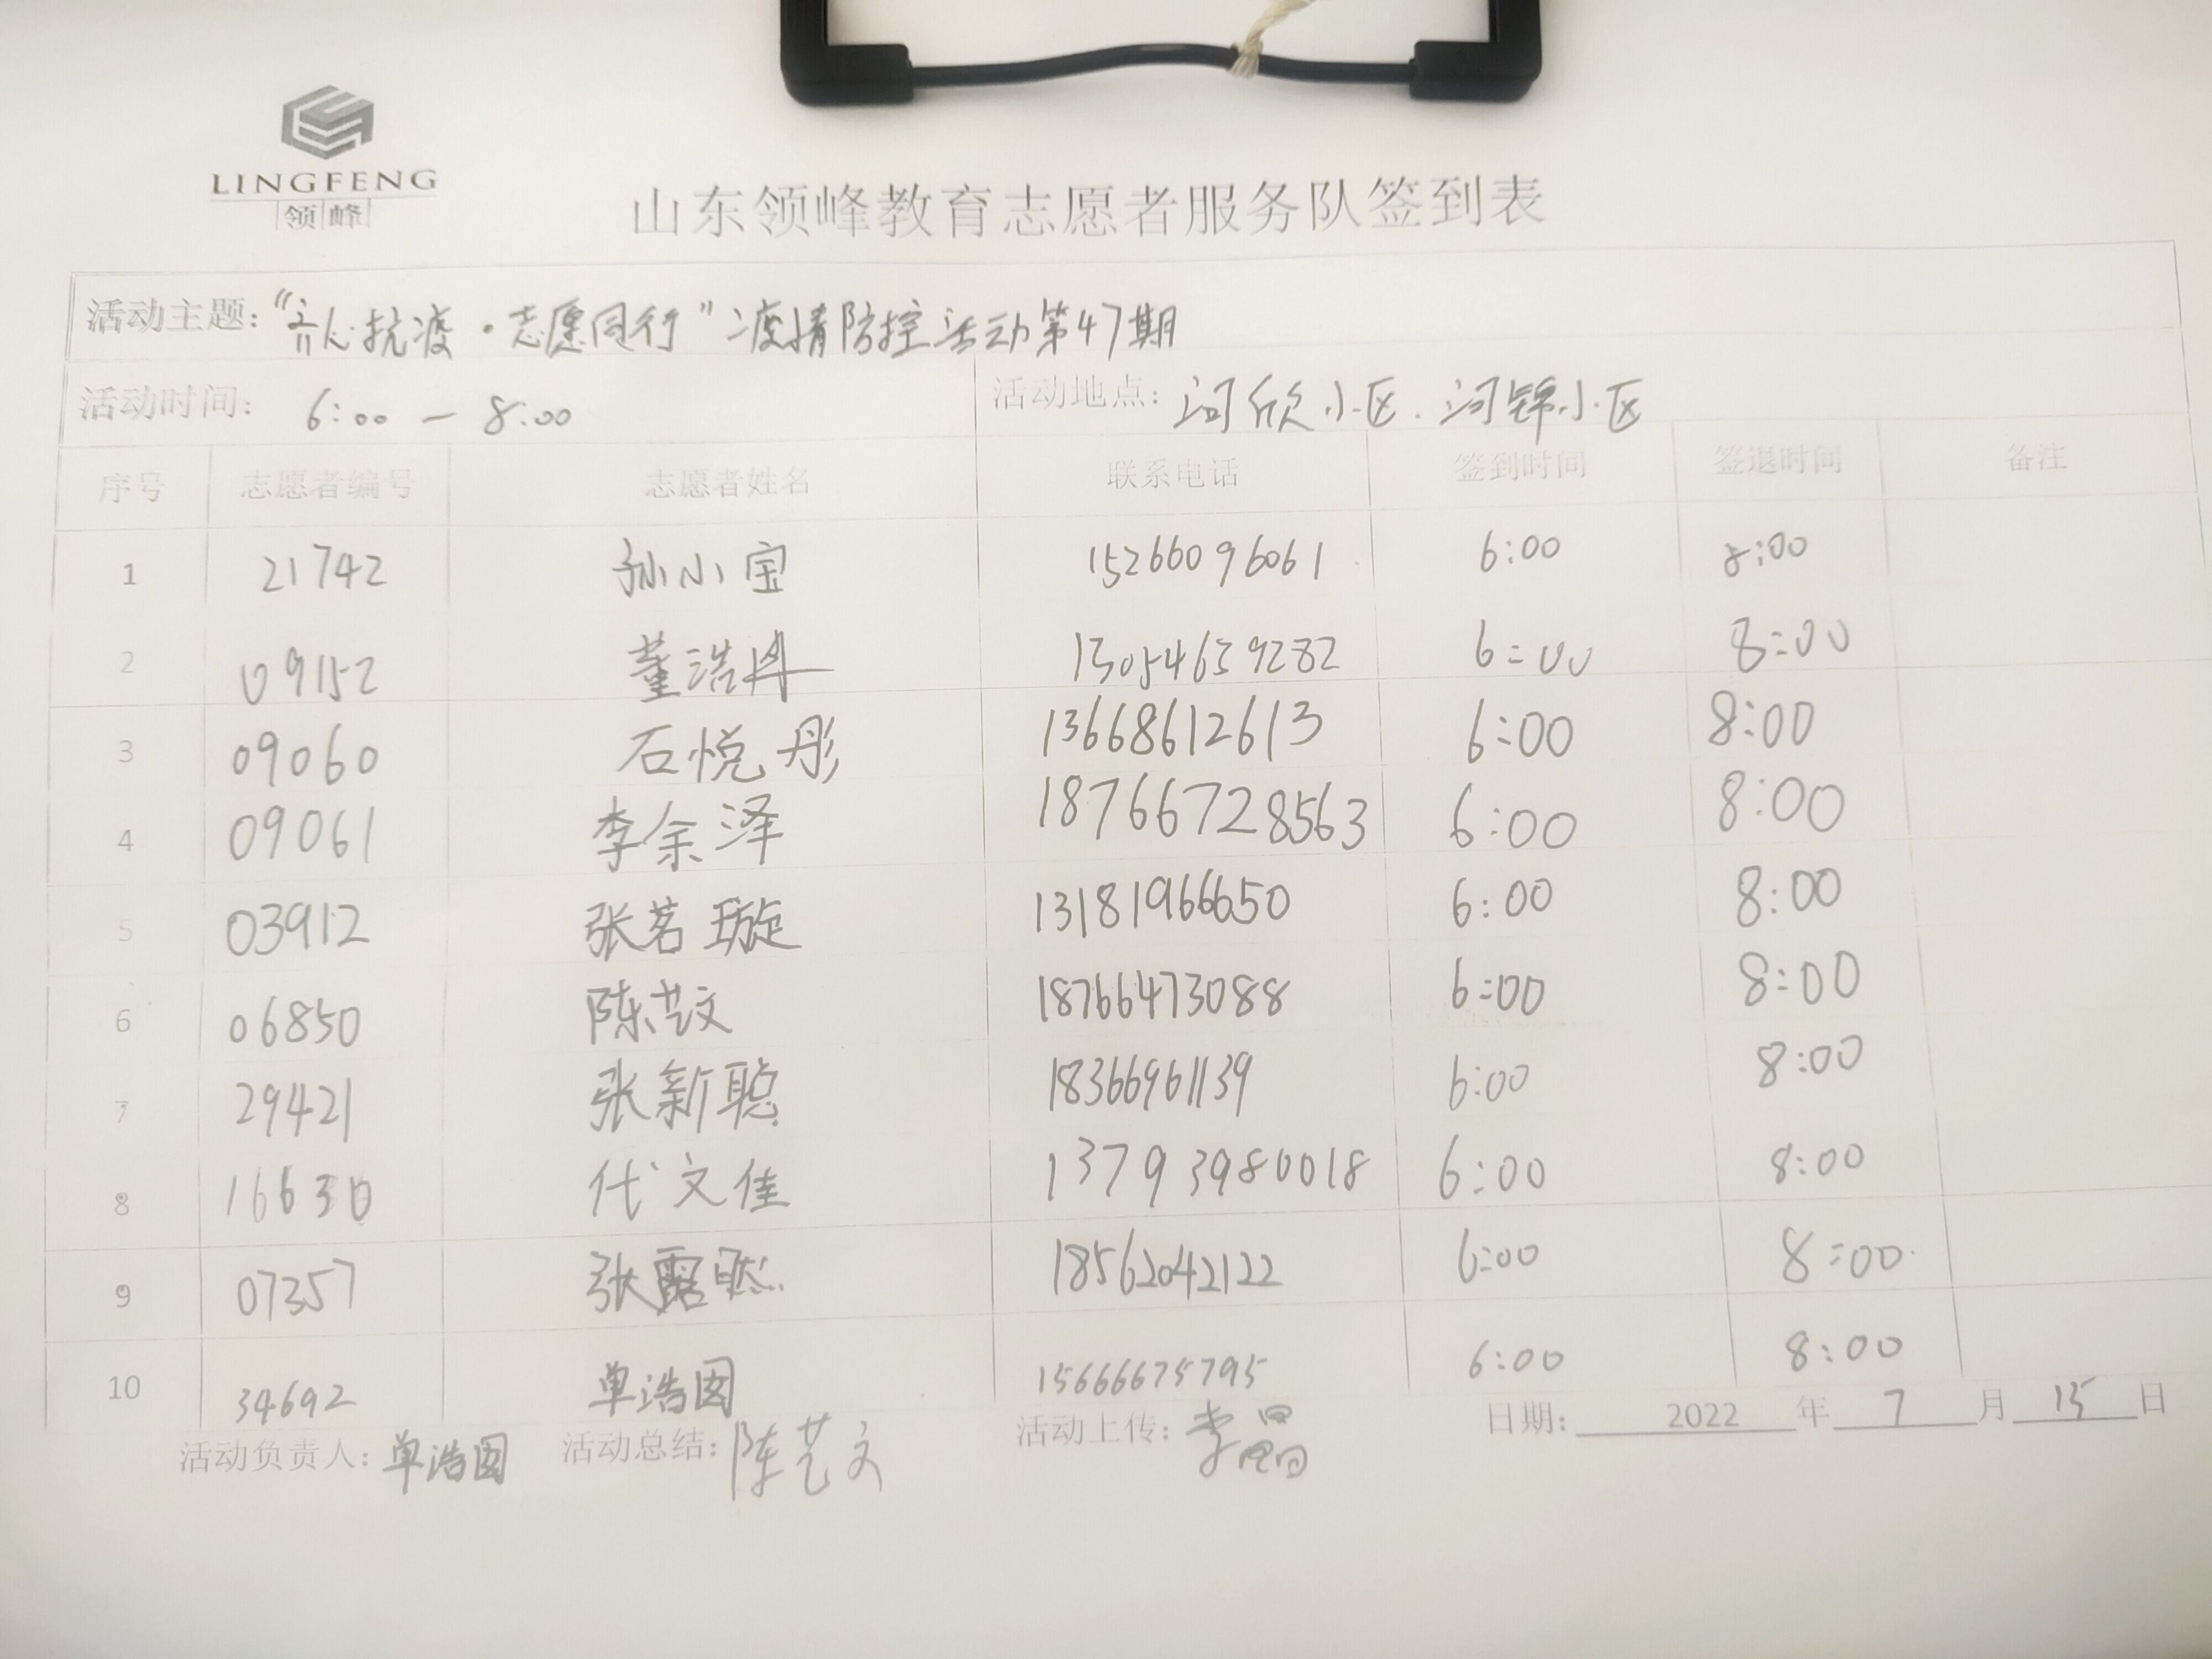 LINGFENG
领峰
山东领峰教育志愿者服务队签到表
活动主题：“齐心抗疫·志愿同行”疫情防控活动第47期
活动时间： 6:00 — 8:00 活动地点：河欣小区.河锦小区
序号 志愿者编号 志愿者姓名 联系电话 签到时间 签退时间 备注
1 21742 孙小宝 15266096061 6:00 8:00
2 09152 董浩 13054659282 6:00 8:00
3 09060 石悦彤 13668612613 6:00 8:00
4 09061 李余泽 18766728563 6:00 8:00
5 03912 张茗璇 13181966650 6:00 8:00
6 06850 陈艺文 18766473088 6:00 8:00
7 29421 张新聪 18366961139 6:00 8:00
8 16630 代文佳 13793980018 6:00 8:00
9 07357 张露 18562042122 6:00 8:00
10 34692 单浩图 15666675795 6:00 8:00
活动负责人：单浩图 活动总结：陈艺文 活动上传：李 日期： 2022 年 7 月 15 日